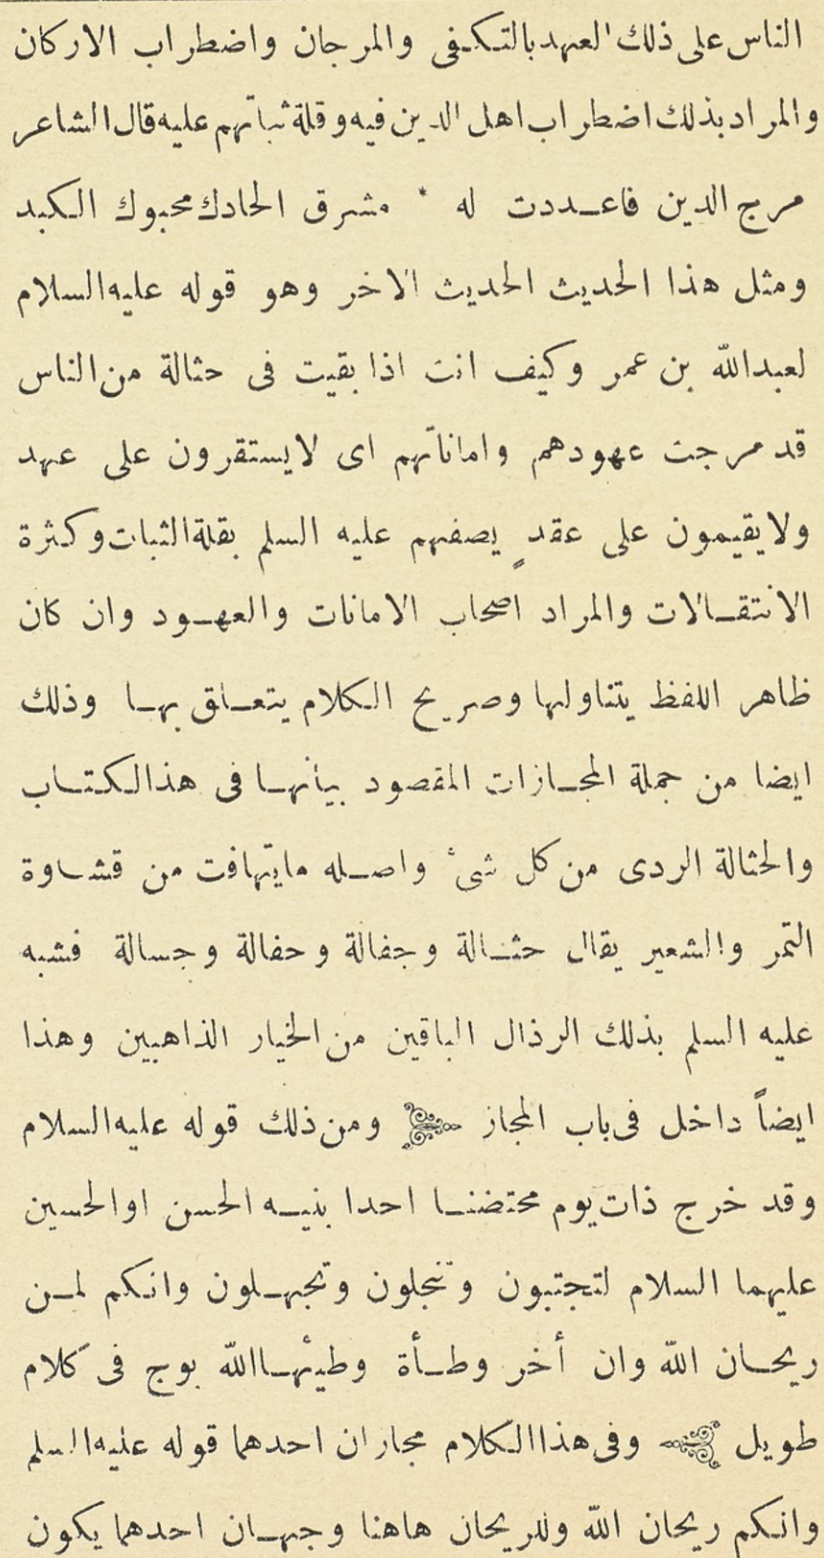 الناس على ذلك العهد بالتكفى والمرجان واضطراب الاركان
والمراد بذلك اضطراب اهل الدين فيه وقلة ثباتهم عليه قال الشاعر
مرج الدين فاعددت له * مشرق الحادك محبوك الكبد
ومثل هذا الحديث الحديث الاخر وهو قوله عليه السلام
لعبدالله بن عمر وكيف انت اذا بقيت فى حثالة من الناس
قد مرجت عهودهم واماناتهم اى لايستقرون على عهد
ولايقيمون على عقدٍ يصفهم عليه السلم بقلة الثبات وكثرة
الانتقالات والمراد اصحاب الامانات والعهود وان كان
ظاهر اللفظ يتناولها وصريح الكلام يتعلق بها وذلك
ايضا من جملة المجازات المقصود بيانها فى هذالكتاب
والحثالة الردى من كل شىء واصله مايتهافت من قشاوة
التمر والشعير يقال حثالة وجفالة وحفالة وجسالة فشبه
عليه السلم بذلك الرذال الباقين من الخيار الذاهبين وهذا
ايضاً داخل فى باب المجاز ومن ذلك قوله عليه السلام
وقد خرج ذات يوم محتضنا احدا بنيه الحسن اوالحسين
عليهما السلام لتجتبون وتنجلون وتجهلون وانكم لمن
ريحان الله وان أخر وطأة وطيئهاالله بوج فى كلام
طويل وفى هذا الكلام مجاران احدهما قوله عليه السلم
وانكم ريحان الله وللريحان هاهنا وجهان احدهما يكون